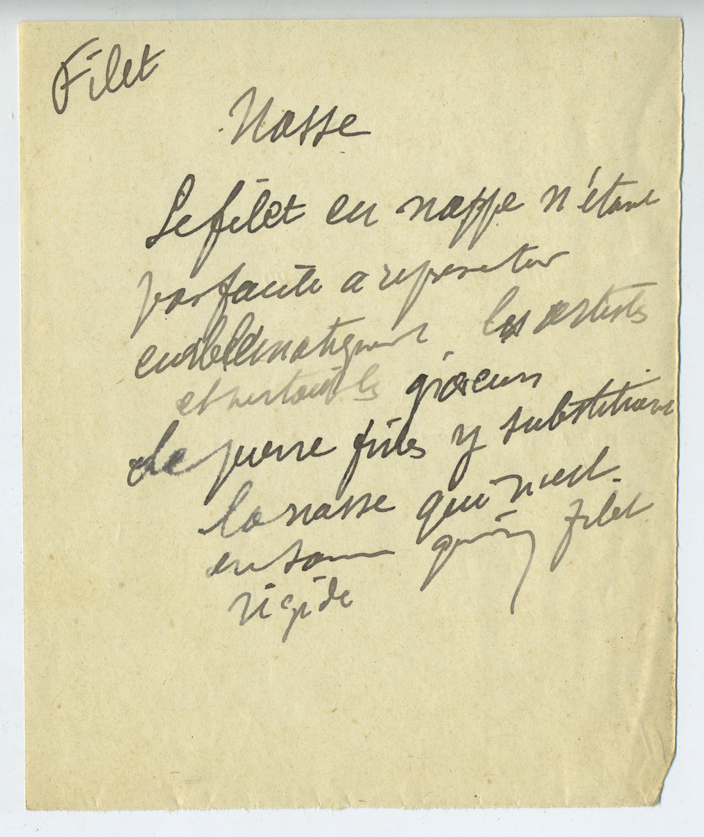 Filet
Nasse
Le filet en nappe n'étant
pas facile a representer
emblématiquement les artistes
et surtout les graveurs
de pierre fines y substituent
la nasse qui n'est
en somme qu'un filet
rigide